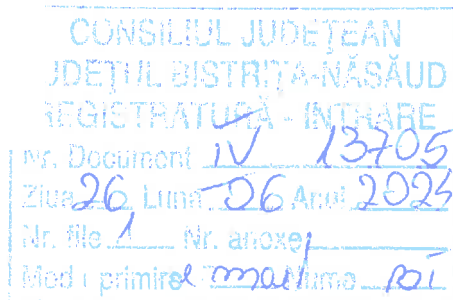 CONSILIUL JUDEȚEAN
JUDEȚUL BISTRIȚA-NĂSĂUD
REGISTRATURĂ - INTRARE
Nr. Document IV 13705
Ziua 26 Luna 06 Anul 2025
Nr. file 1 Nr. anexe
Mod primire email